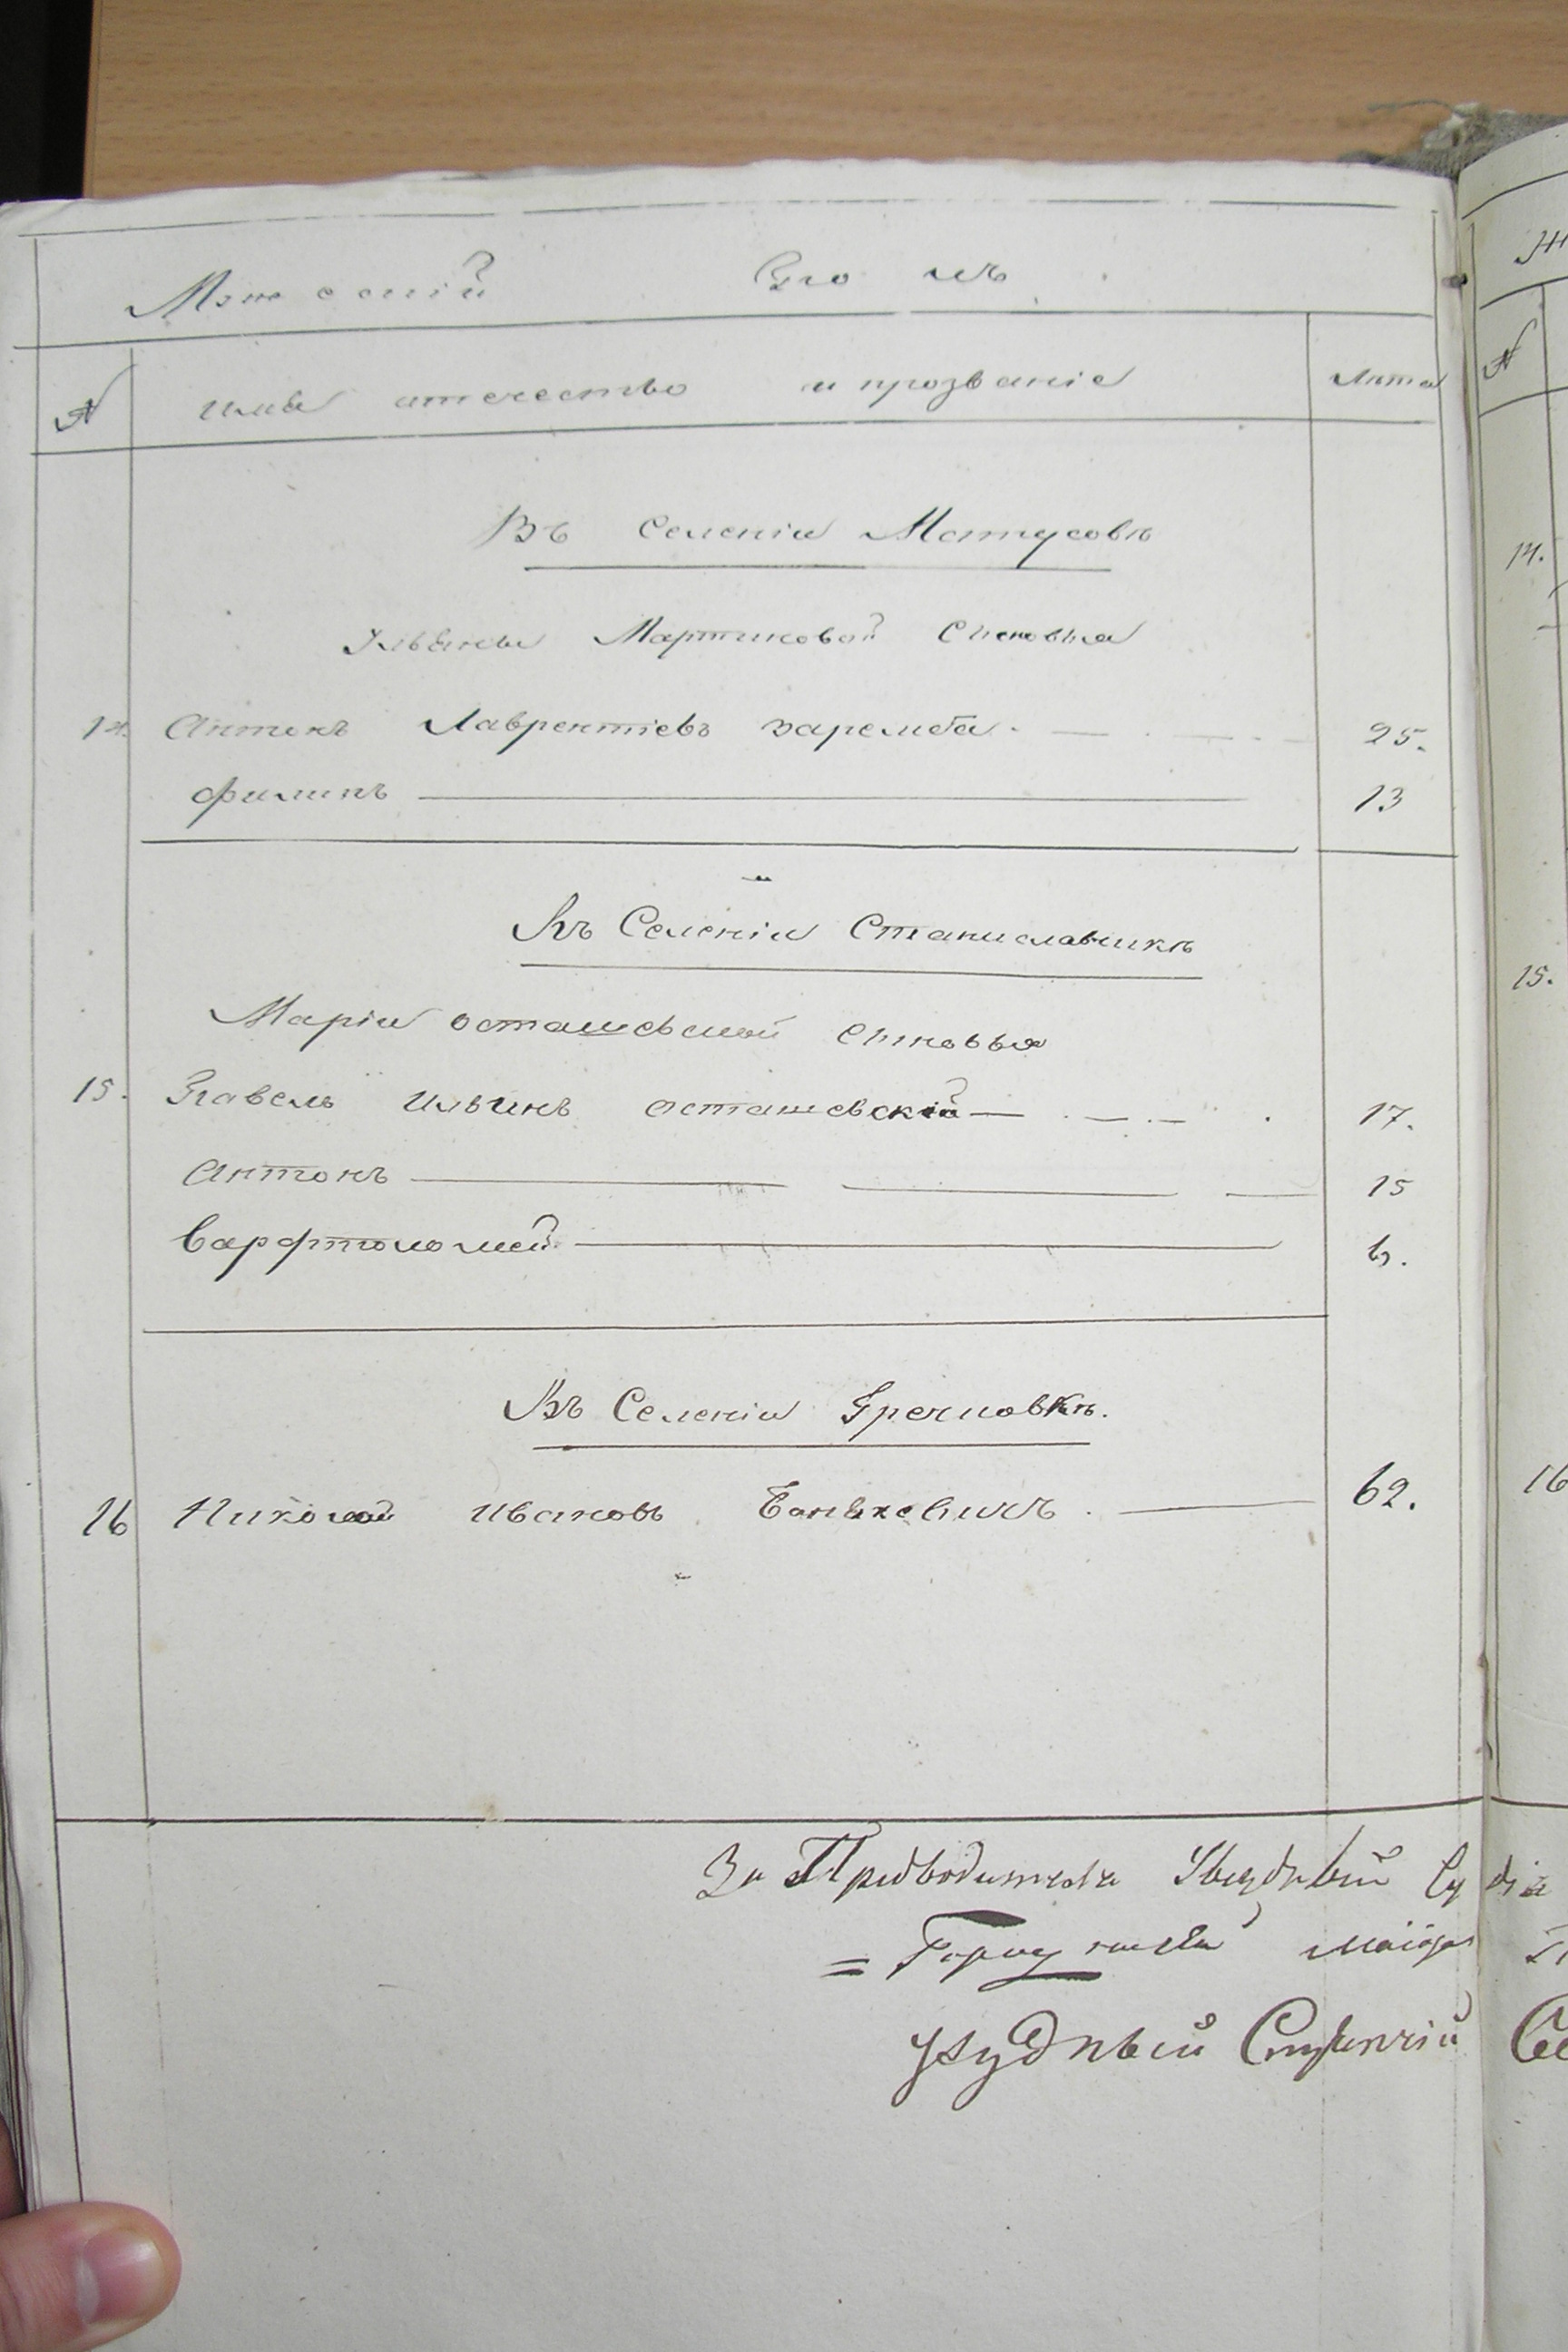 Мужеский Полъ
№ имя отечество и прозваніе лѣта
Въ Селеніи Матусовѣ
Мартиновой Сыновья
14. Антонъ Лаврентіевъ Заремба. 25.
Филипъ 13
Въ Селеніи Станиславчикѣ
Маріи Осташевской Сыновья
15. Павелъ Ильинъ Осташевскій 17.
Антонъ 15
Варфтоломей 6.
Въ Селеніи Гречковкѣ.
16 Николай Ивановъ Баньковичъ 62.
За Предводителя Уѣздный Судія
= Городничій Маіоръ
Уѣздный Стряпчій
Ж
№
14.
15.
16